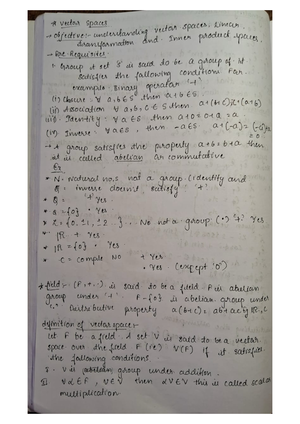 * Vector Spaces
→ Objective:- understanding vector spaces, Linear
transformation and Inner product spaces.
→ Pre-Requisites:-
Group A set S is said to be a group if it
satisfies the following conditions for
example Binary operator '+'
(i) Closure: ∀ a,b ∈ S then a+b ∈ S
(ii) Association ∀ a,b,c ∈ S then a+(b+c) = (a+b)
(iii) Identity: ∀ a ∈ S then a+0 = 0+a = a
(iv) Inverse: ∀ a ∈ S, then -a ∈ S a+(-a) = (-a)+a
→ A group satisfies the property a+b = b+a then
it is called abelian or commutative.
Ex
* N: Natural no,s not a group (identity and
inverse doesn't satisfy '+'
* Q = '+' Yes
* Q-{0} • Yes
* Z = {0, ±1, ±2 ...} No not a group (•) '+' Yes
* IR + Yes
* IR - {0} • Yes
* C = comple no + Yes
• Yes (except '0')
* field:- (F, +, •) is said to be a field. F is abelian
group under '+'. F-{0} is abelian group under
'•'. Distributive property a(b+c) = ab+ac
definition of vector space:-
Let F be a field. A set V is said to be a vector
space over the field F V(F) if it satisfies
the following conditions.
V is abelian group under addition.
∀ α ∈ F, v ∈ V then αv ∈ V this is called scalar
multiplication